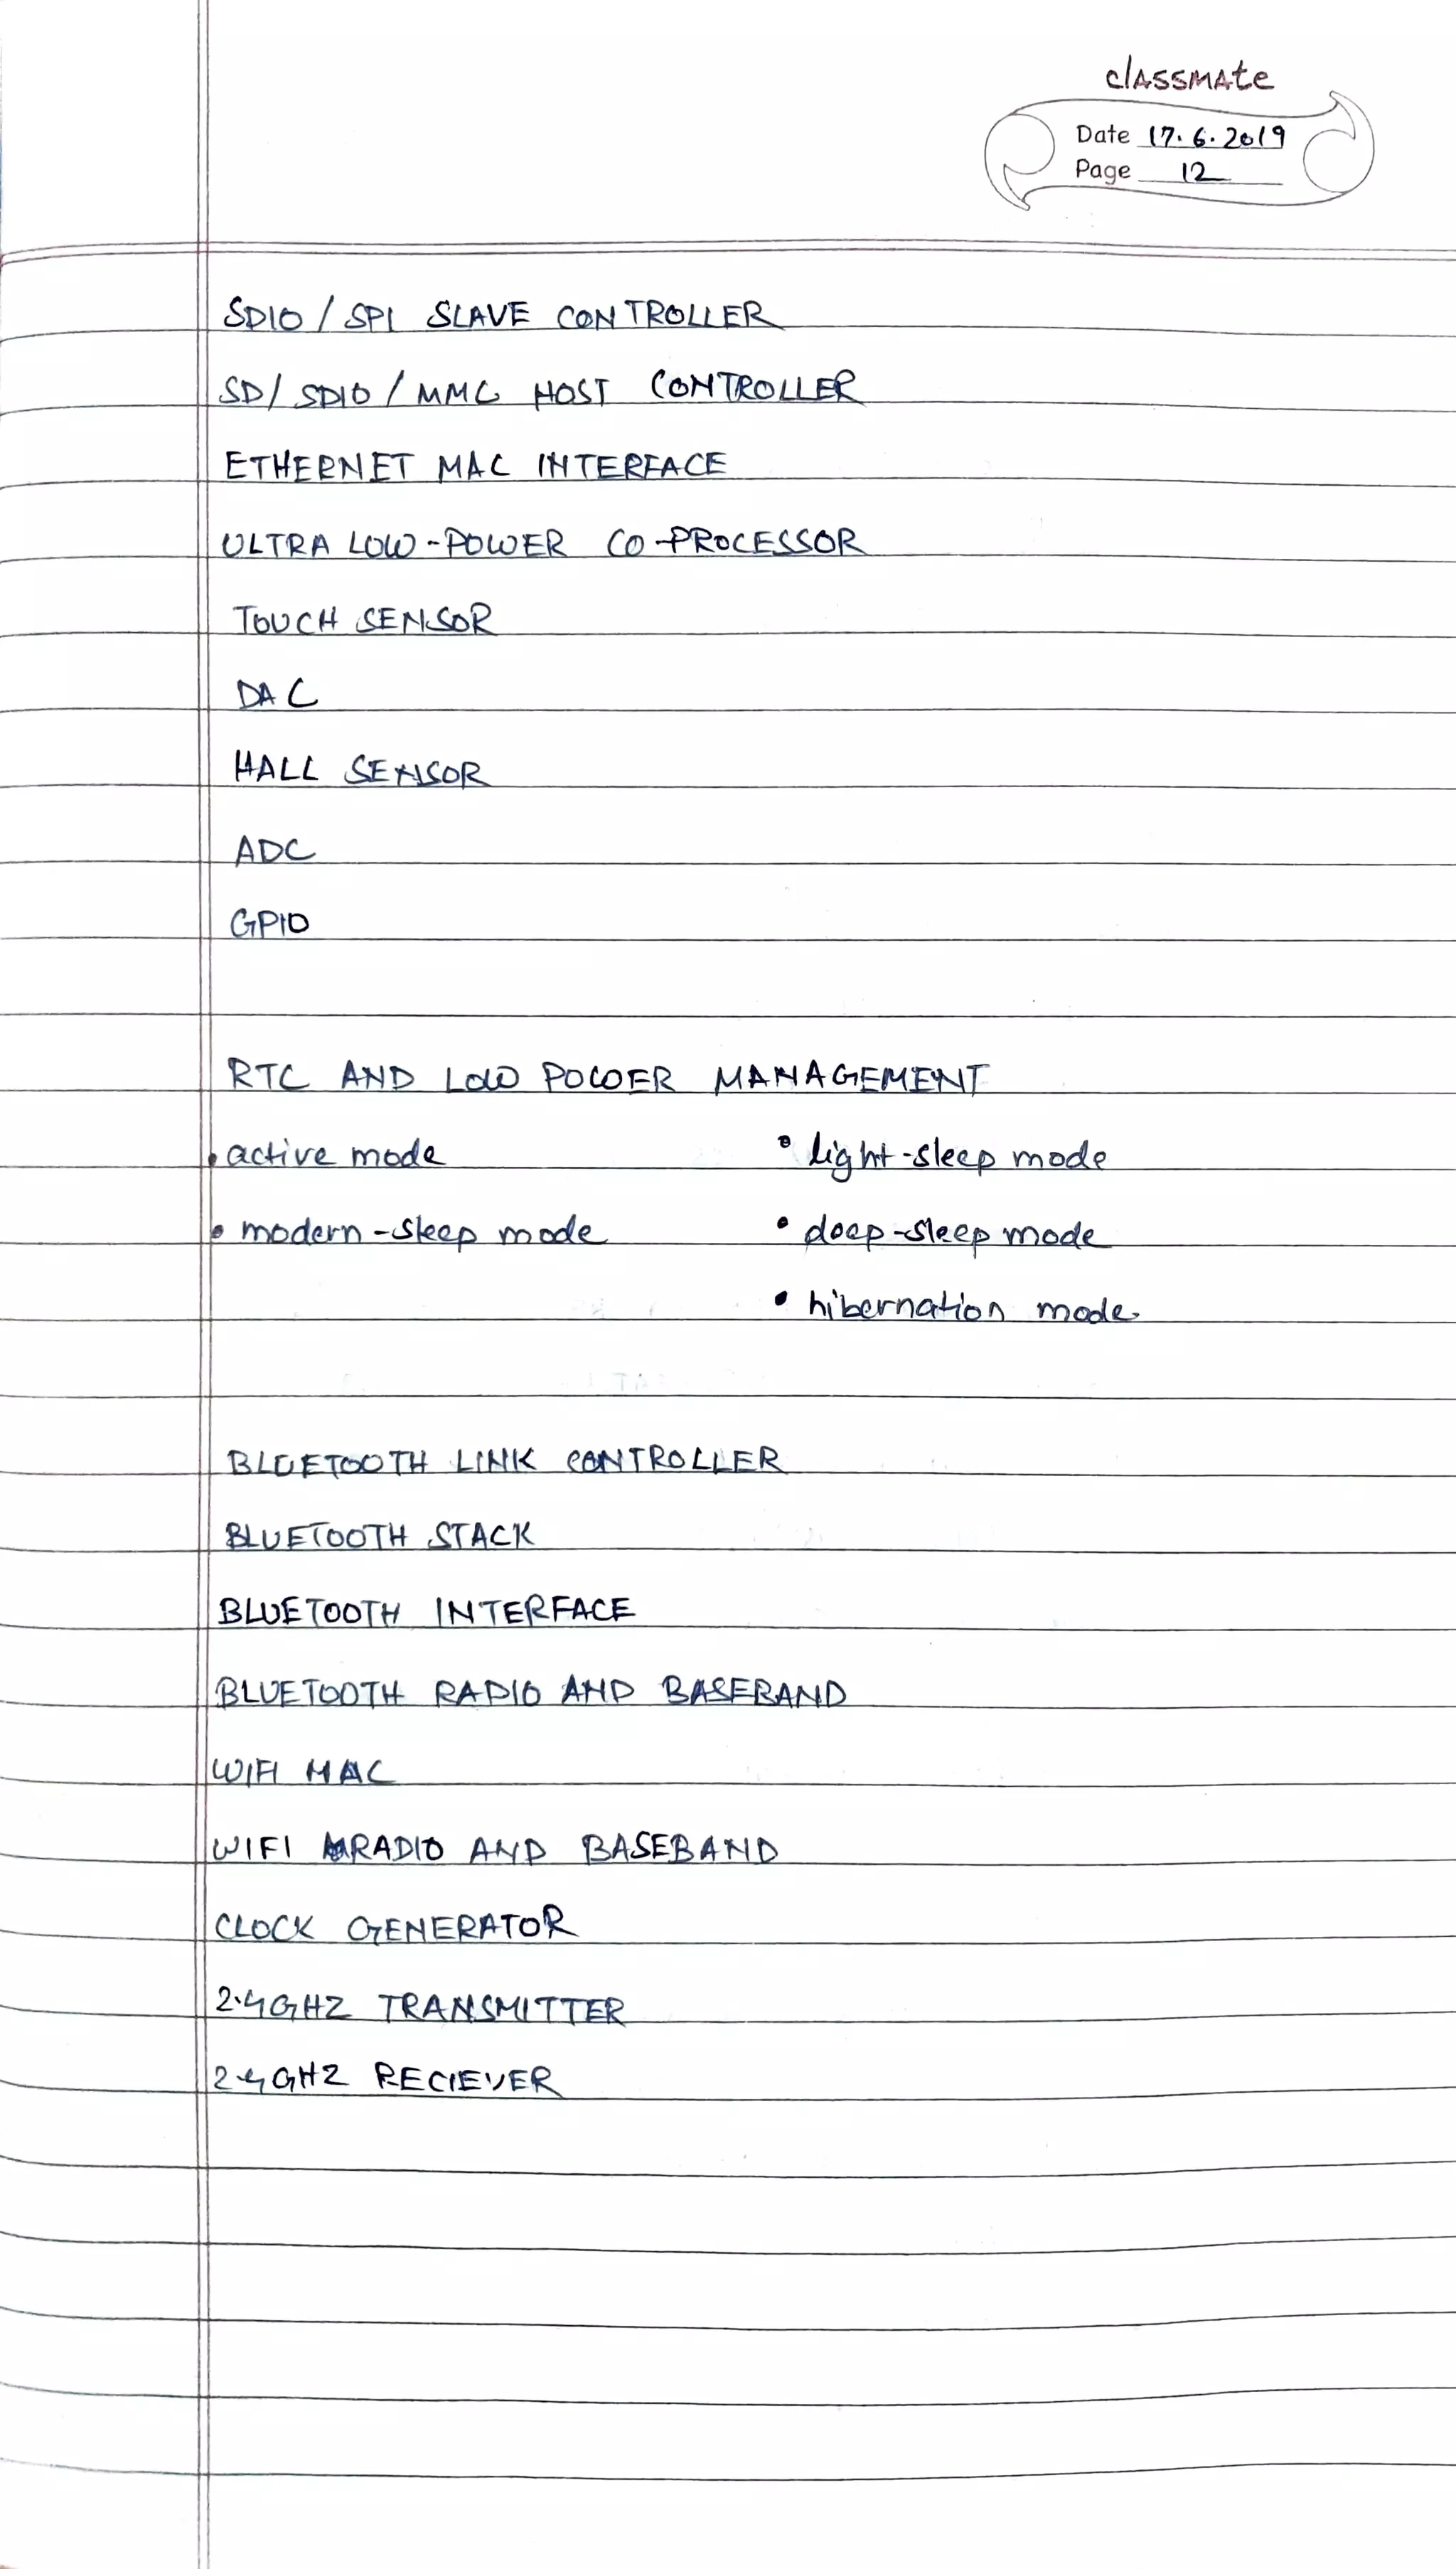 classmate
Date 17.6.2019
Page 12
SDIO / SPI SLAVE CONTROLLER
SD/ SDIO / MMC HOST CONTROLLER
ETHERNET MAC INTERFACE
ULTRA LOW-POWER CO-PROCESSOR
TOUCH SENSOR
DAC
HALL SENSOR
ADC
GPIO
RTC AND LOW POWER MANAGEMENT
• active mode • light-sleep mode
• modern-sleep mode • deep-sleep mode
• hibernation mode
BLUETOOTH LINK CONTROLLER
BLUETOOTH STACK
BLUETOOTH INTERFACE
BLUETOOTH RADIO AND BASEBAND
WIFI MAC
WIFI RADIO AND BASEBAND
CLOCK GENERATOR
2.4GHZ TRANSMITTER
2.4GHZ RECIEVER